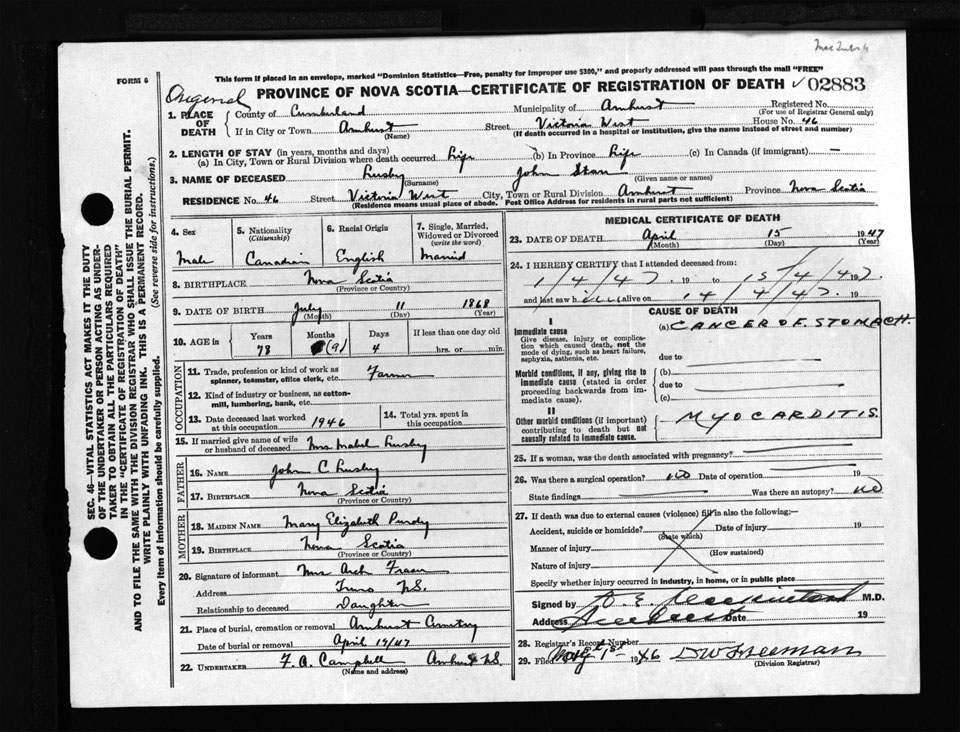 FORM 6
This form if placed in an envelope, marked "Dominion Statistics—Free, penalty for improper use $300," and properly addressed will pass through the mail "FREE"
Original
PROVINCE OF NOVA SCOTIA—CERTIFICATE OF REGISTRATION OF DEATH 02883
1. PLACE OF DEATH
County of Cumberland Municipality of Amherst Registered No.
(For use of Registrar General only)
If in City or Town Amherst (Name) Street Victoria West House No. 46
(If death occurred in a hospital or institution, give the name instead of street and number)
2. LENGTH OF STAY (in years, months and days)
(a) In City, Town or Rural Division where death occurred Life (b) In Province Life (c) In Canada (if immigrant) —
3. NAME OF DECEASED Lusby (Surname) John Starr (Given name or names)
RESIDENCE No. 46 Street Victoria West City, Town or Rural Division Amherst Province Nova Scotia
(Residence means usual place of abode. Post Office Address for residents in rural parts not sufficient)
4. Sex Male
5. Nationality (Citizenship) Canadian
6. Racial Origin English
7. Single, Married, Widowed or Divorced (write the word) Married
8. BIRTHPLACE Nova Scotia
(Province or Country)
9. DATE OF BIRTH July (Month) 11 (Day) 1868 (Year)
10. AGE in Years 78 Months (9) Days 4 If less than one day old hrs. or min.
OCCUPATION
11. Trade, profession or kind of work as spinner, teamster, office clerk, etc. Farmer
12. Kind of industry or business, as cotton-mill, lumbering, bank, etc.
13. Date deceased last worked at this occupation 1946
14. Total yrs. spent in this occupation
15. If married give name of wife or husband of deceased Mrs Mabel Lusby
FATHER
16. NAME John C Lusby
17. BIRTHPLACE Nova Scotia
(Province or Country)
MOTHER
18. MAIDEN NAME Mary Elizabeth Purdy
19. BIRTHPLACE Nova Scotia
(Province or Country)
20. Signature of informant Mrs Arch Fraser
Address Truro N.S.
Relationship to deceased Daughter
21. Place of burial, cremation or removal Amherst Cemetery
Date of burial or removal April 17/47
22. UNDERTAKER F. A. Campbell Amherst N.S.
(Name and address)
MEDICAL CERTIFICATE OF DEATH
23. DATE OF DEATH April (Month) 15 (Day) 1947 (Year)
24. I HEREBY CERTIFY that I attended deceased from:
1/4/47 19 to 15/4/47 19
and last saw him alive on 14/4/47 19
CAUSE OF DEATH
I
Immediate cause
Give disease, injury or complication which caused death, not the mode of dying, such as heart failure, asphyxia, asthenia, etc.
(a) CANCER OF STOMACH
due to
Morbid conditions, if any, giving rise to immediate cause (stated in order proceeding backwards from immediate cause).
(b)
due to
(c)
II
Other morbid conditions (if important) contributing to death but not causally related to immediate cause.
MYOCARDITIS
25. If a woman, was the death associated with pregnancy?
26. Was there a surgical operation? no Date of operation 19
State findings Was there an autopsy? no
27. If death was due to external causes (violence) fill in also the following:—
Accident, suicide or homicide? (State which) Date of injury 19
Manner of injury (How sustained)
Nature of injury
Specify whether injury occurred in industry, in home, or in public place
Signed by D. E. Mackintosh M.D.
Address Amherst Date 19
28. Registrar's Record Number
29. Filed 1st 1946 D W Freeman
(Division Registrar)
SEC. 46—VITAL STATISTICS ACT MAKES IT THE DUTY
OF THE UNDERTAKER OR PERSON ACTING AS UNDER-
TAKER TO OBTAIN ALL THE PARTICULARS REQUIRED
IN THE "CERTIFICATE OF REGISTRATION OF DEATH"
AND TO FILE THE SAME WITH THE DIVISION REGISTRAR WHO SHALL ISSUE THE BURIAL PERMIT.
WRITE PLAINLY WITH UNFADING INK. THIS IS A PERMANENT RECORD.
Every item of Information should be carefully supplied. (See reverse side for instructions.)